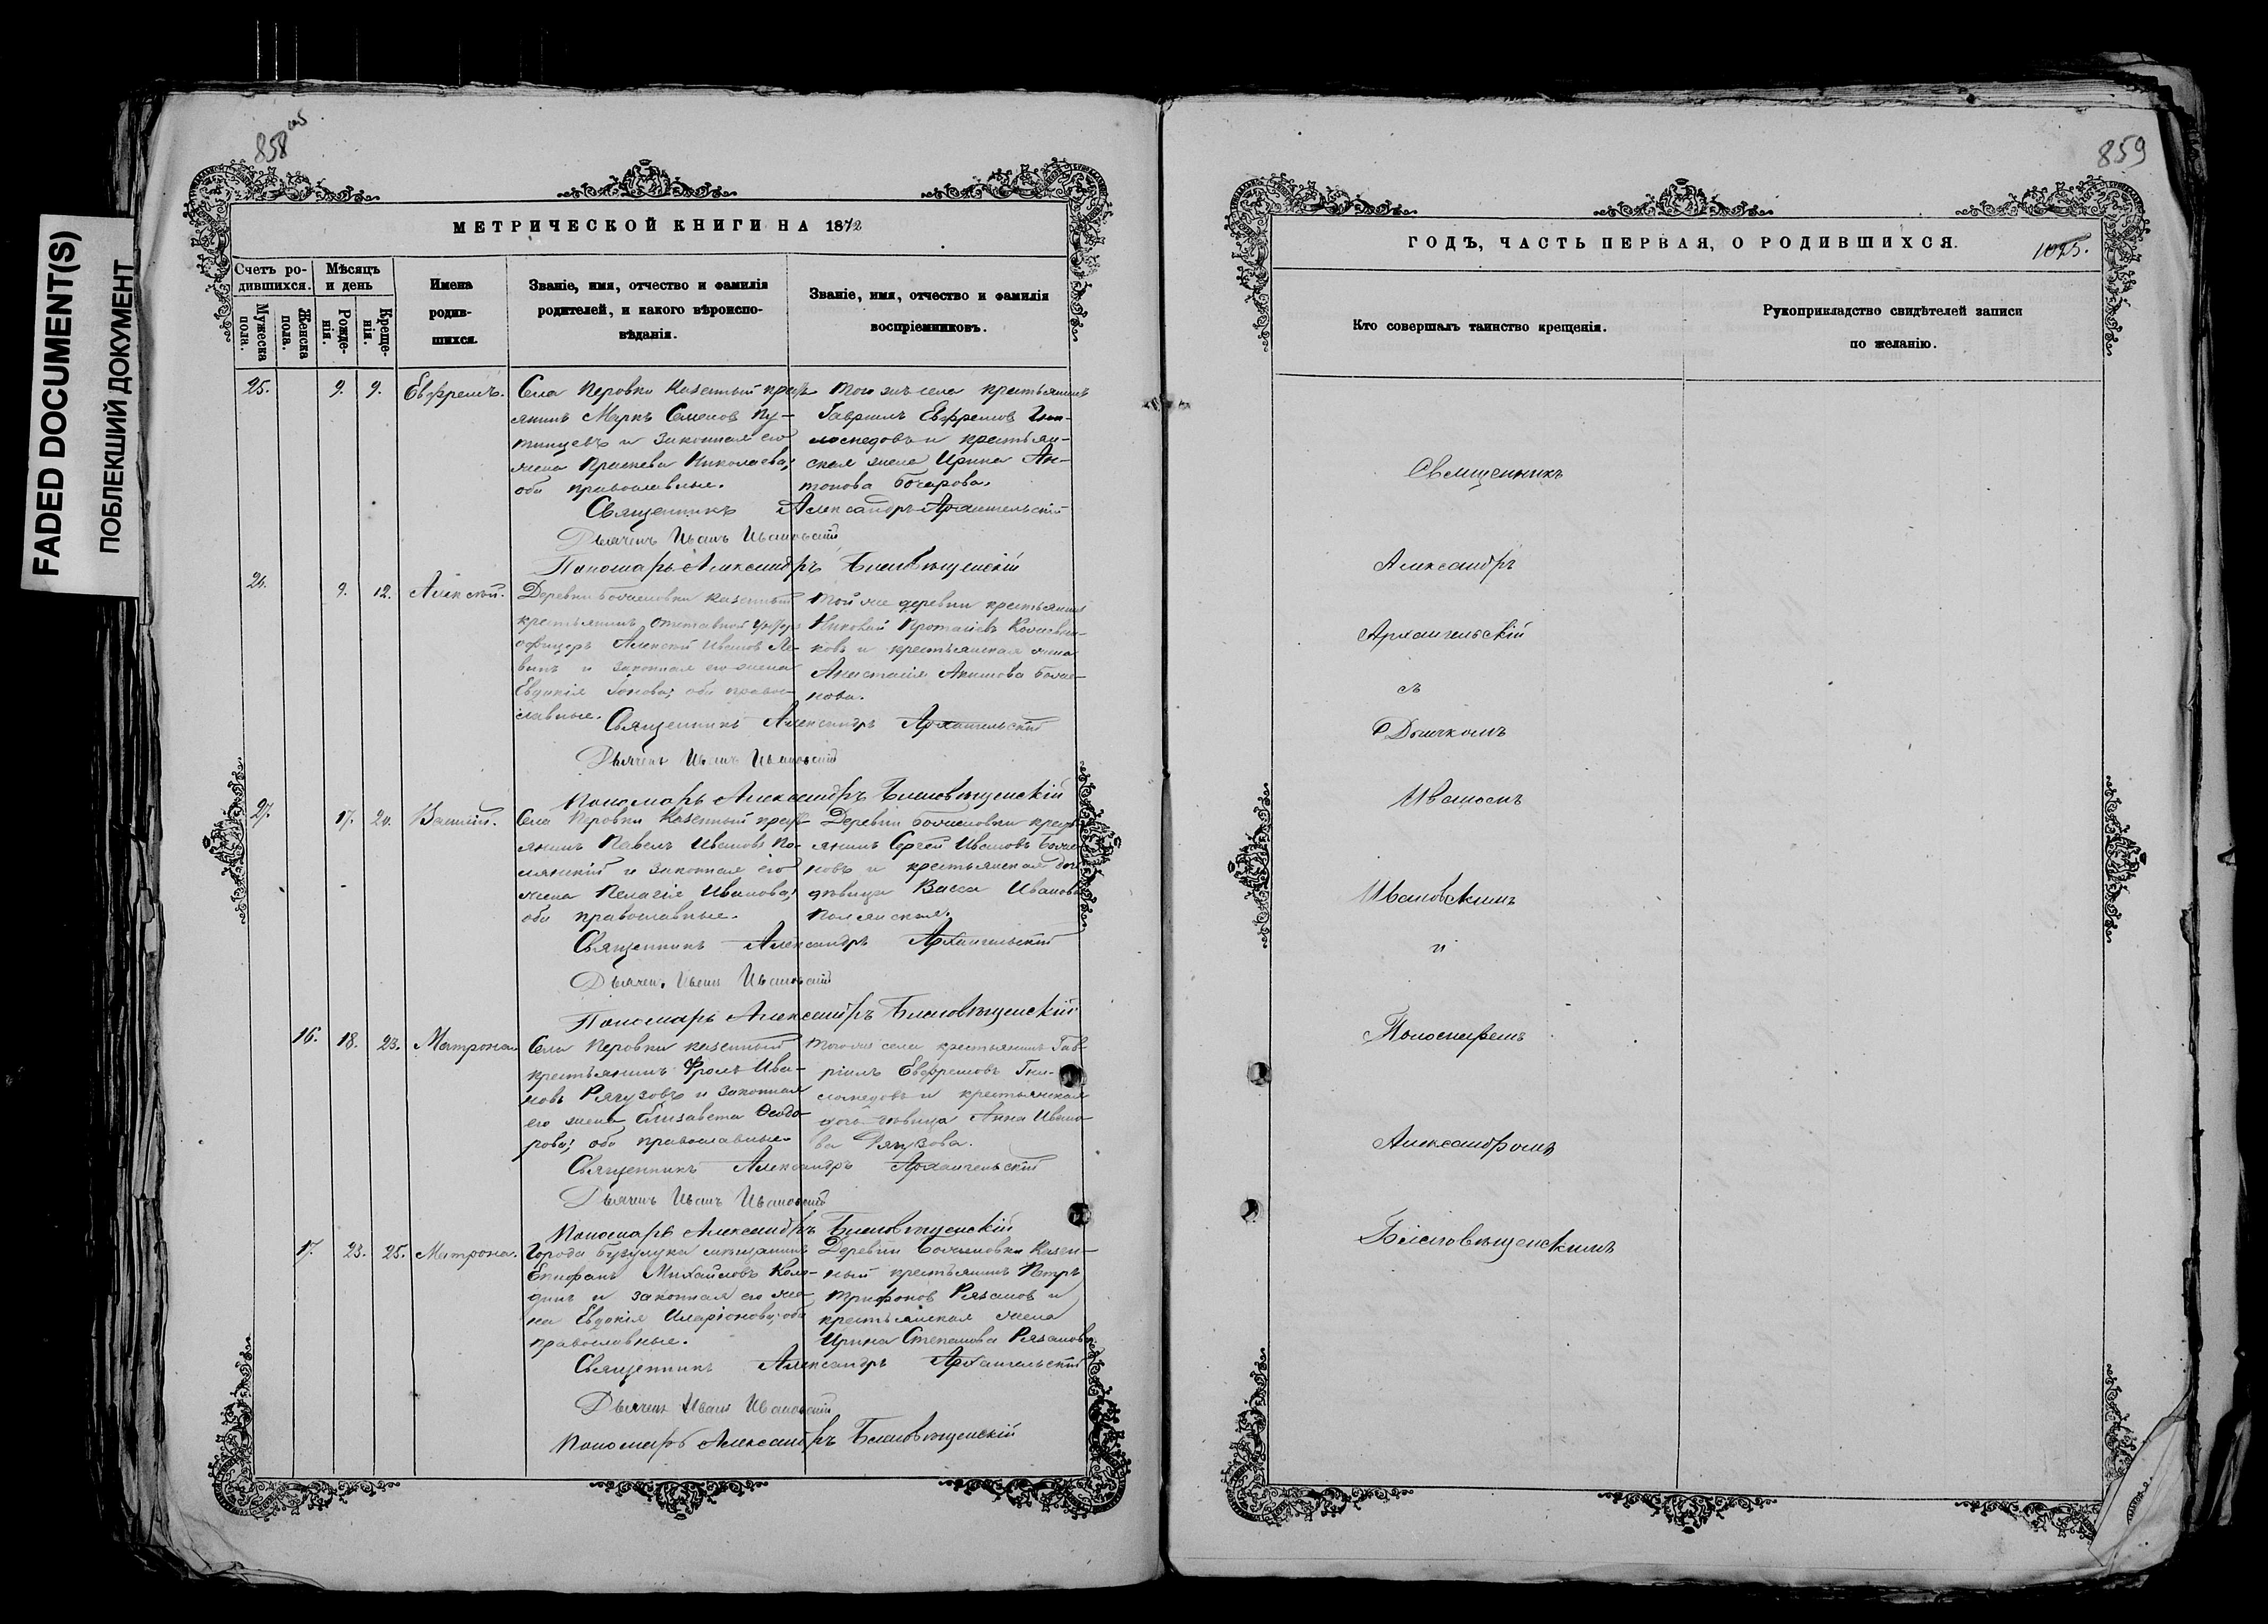 FADED DOCUMENT(S)
ПОБЛЕКШИЙ ДОКУМЕНТ
858 об
МЕТРИЧЕСКОЙ КНИГИ НА 1872
Счетъ ро-
дившихся.
Мужеска
пола.
Женска
пола.
Мѣсяцъ
и день
Рожде-
нія.
Креще-
нія.
Имена
родив-
шихся.
Званіе, имя, отчество и фамилія
родителей, и какого вѣроиспо-
вѣданія.
Званіе, имя, отчество и фамилія
воспріемниковъ.
25. 9. 9. Евфремъ.
Села Перовки казенный крестъ
янинъ Маркъ Семенов
и законная его
жена Праскева Николаева;
оба православные.
Того же села крестьянинъ
Гавріилъ Евфремов
и крестьян-
ская жена Ирина Ан-
тонова Бочарова.
Священникъ Александръ Архангельскій
Дьячекъ Иванъ Ивановскій
Пономарь Александръ Благовѣщенскій
26. 9. 12. Алексѣй.
Деревни казенный
крестьянинъ, отставной унтеръ
офицеръ Алексѣй Иванов
и законная его жена
Евдокія оба право-
славные.
Той же деревни крестьянинъ
Николай
ковъ и крестьянская жена
Анастасія Акимова
нова.
Священникъ Александръ Архангельскій
Дьячекъ Иванъ Ивановскій
Пономарь Александръ Благовѣщенскій
27. 17. 20. Василій.
Села Перовки казенный крестъ
янинъ Павелъ Ивановъ По-
лянскій и законная его
жена Пелагія Иванова;
оба православные.
Деревни крестъ
янинъ Сергѣй Ивановъ
новъ и крестьянская дочь
дѣвица Васса Иванова
Полянская.
Священникъ Александръ Архангельскій
Дьячекъ Иванъ Ивановскій
Пономарь Александръ Благовѣщенскій
16. 18. 23. Матрона.
Села Перовки казенный
крестьянинъ Фролъ Ива-
новъ Рягузовъ и законная
его жена Елизавета Ѳеодо-
рова; оба православные.
Того же села крестьянинъ Гав-
ріилъ Евфремовъ
и крестьянская
дочь дѣвица Анна Ивано-
ва Рягузова.
Священникъ Александръ Архангельскій
Дьячекъ Иванъ Ивановскій
Пономарь Александръ Благовѣщенскій
17. 23. 25. Матрона.
Города Бузулука мѣщанинъ
Епифанъ Михайловъ
и законная его же-
на Евдокія Иларіонова; оба
православные.
Деревни казен-
ный крестьянинъ Петръ
Трифонов Рязанов и
крестьянская жена
Ирина Степанова Рязанова.
Священникъ Александръ Архангельскій
Дьячекъ Иванъ Ивановскій
Пономарь Александръ Благовѣщенскій
859
ГОДЪ, ЧАСТЬ ПЕРВАЯ, О РОДИВШИХСЯ.
1025.
Кто совершалъ таинство крещенія.
Рукоприкладство свидѣтелей записи
по желанію.
Священникъ
Александръ
Архангельскій
съ
Дьячкомъ
Иваномъ
Ивановскимъ
и
Пономаремъ
Александромъ
Благовѣщенскимъ